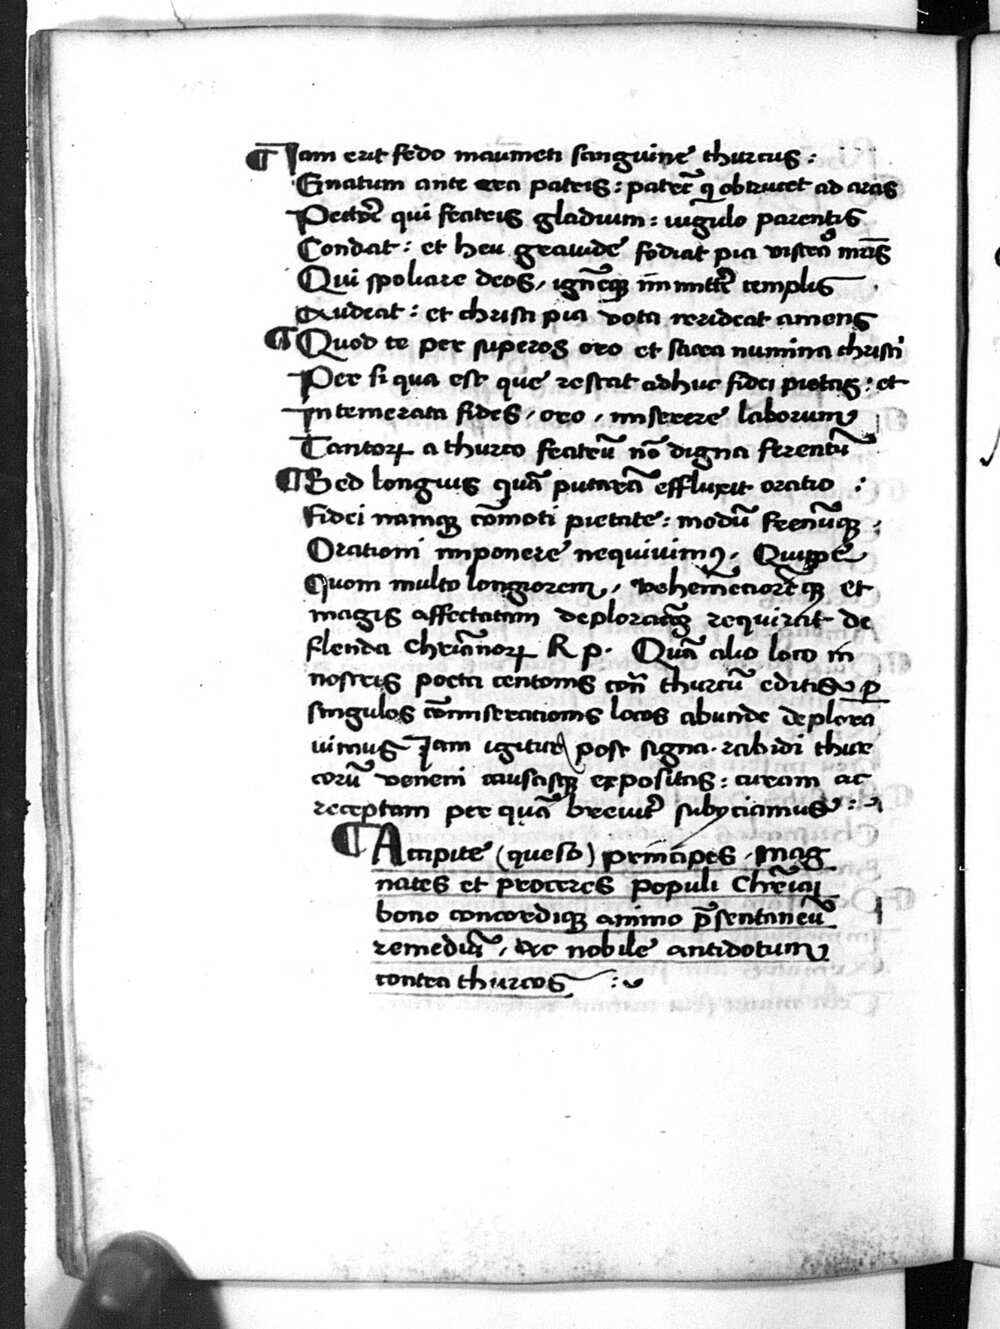 ¶ Iam erit fedo maumeti sanguine thurcus :
Gnatum ante ora patris : patrē q̨ obtrucet ad aras
Pectorē qui fratris gladium : iugulo parentis
Condat : et heu grauide fodiat pia viscera mr̄is
Qui spoliare deos, ignēq̨ immittē templis
Audeat : et christi pia vota rerideat amens
¶ Quod te per superos oro et sacra numina christi
Per si qua est que restat adhuc fidei pietas : et
Intemerata fides, oro, miserere laborum
Tantoꝝ a thurco fratrū nō digna ferentū
¶ Sed longius quā putarā effluxit oratio :
Fidei namq̨ cōmoti pietate : modū frenūq̨ ,
Orationi imponere nequiuimꝯ. Quippe
Quom multo longiorem, vehemēciorēq̨ et
magis affectatam deploracōꝫ requirat de
flenda chr̄ianoꝝ R p. Quā alio loco in
nostris poeta centonis cōn̄ thurcū editis ꝑ
singulos cōmiserationis locos abunde deplora
uimus Iam igitur post signa . rabidi thur
corū veneni causasq̨ expositas : curam ac
receptam per quā breuiꝰ subyciamus :
¶ Accipite (queso) principes, mag
nates et proceres populi Chr̄iai
bono concordiq̨ animo p̄sentaneū
remediū, ac nobile antidotum
contra thurcos :